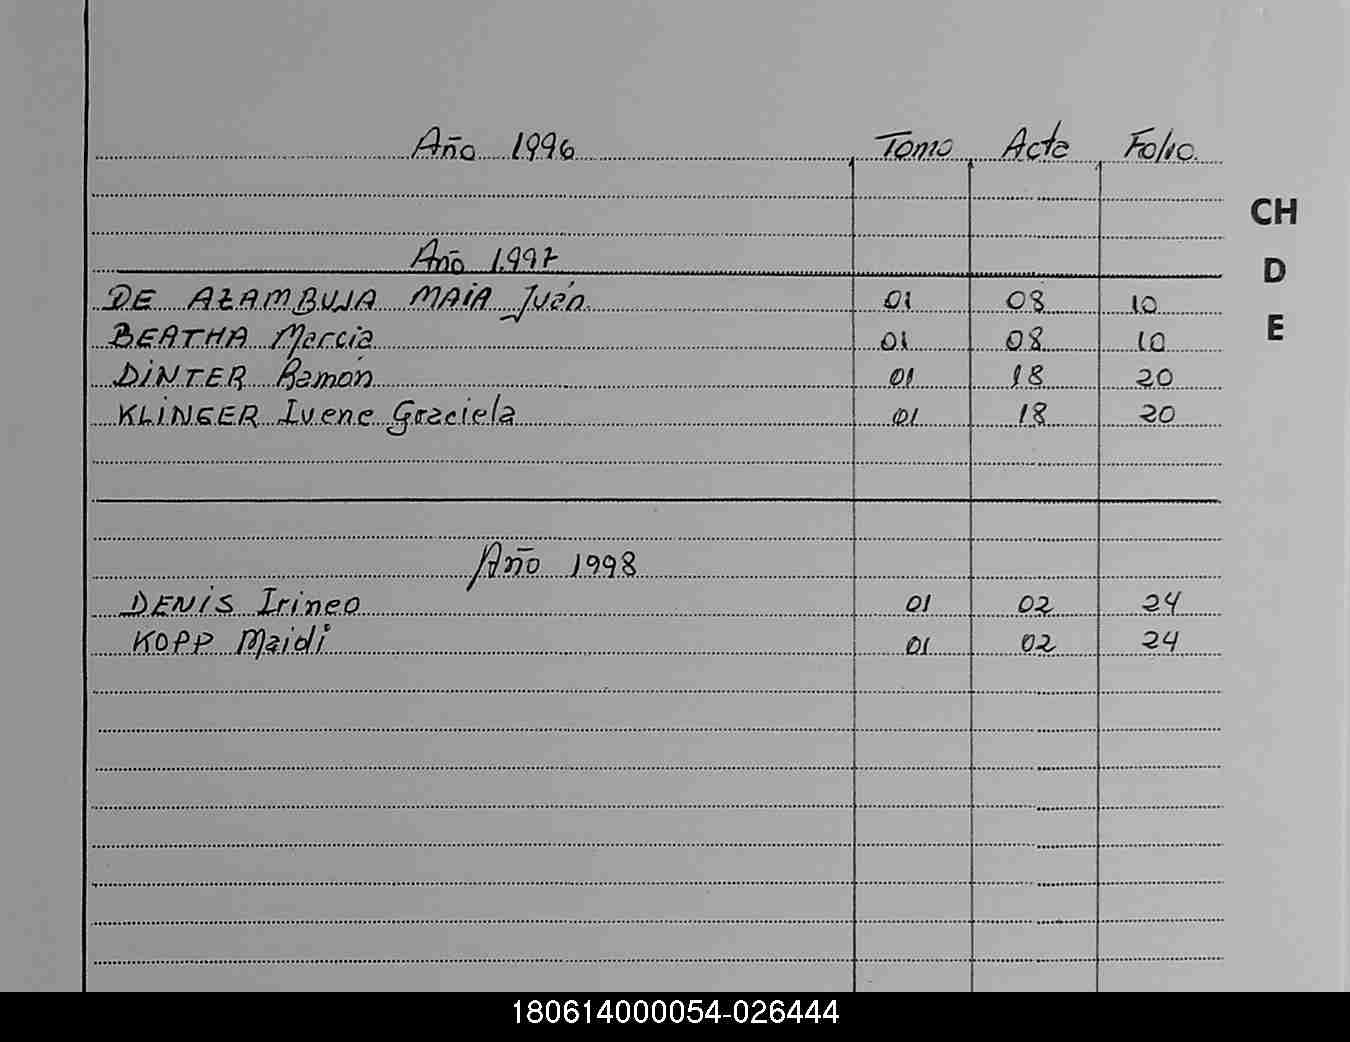 Año 1996 Tomo Acta Folio
CH
Año 1997
D
DE AZAMBUJA MAIA Juán 01 08 10
BEATHA Marcia 01 08 10
E
DINTER Ramón 01 18 20
KLINGER Ivene Graciela 01 18 20
Año 1998
DENIS Irineo 01 02 24
KOPP Maidi 01 02 24
180614000054-026444